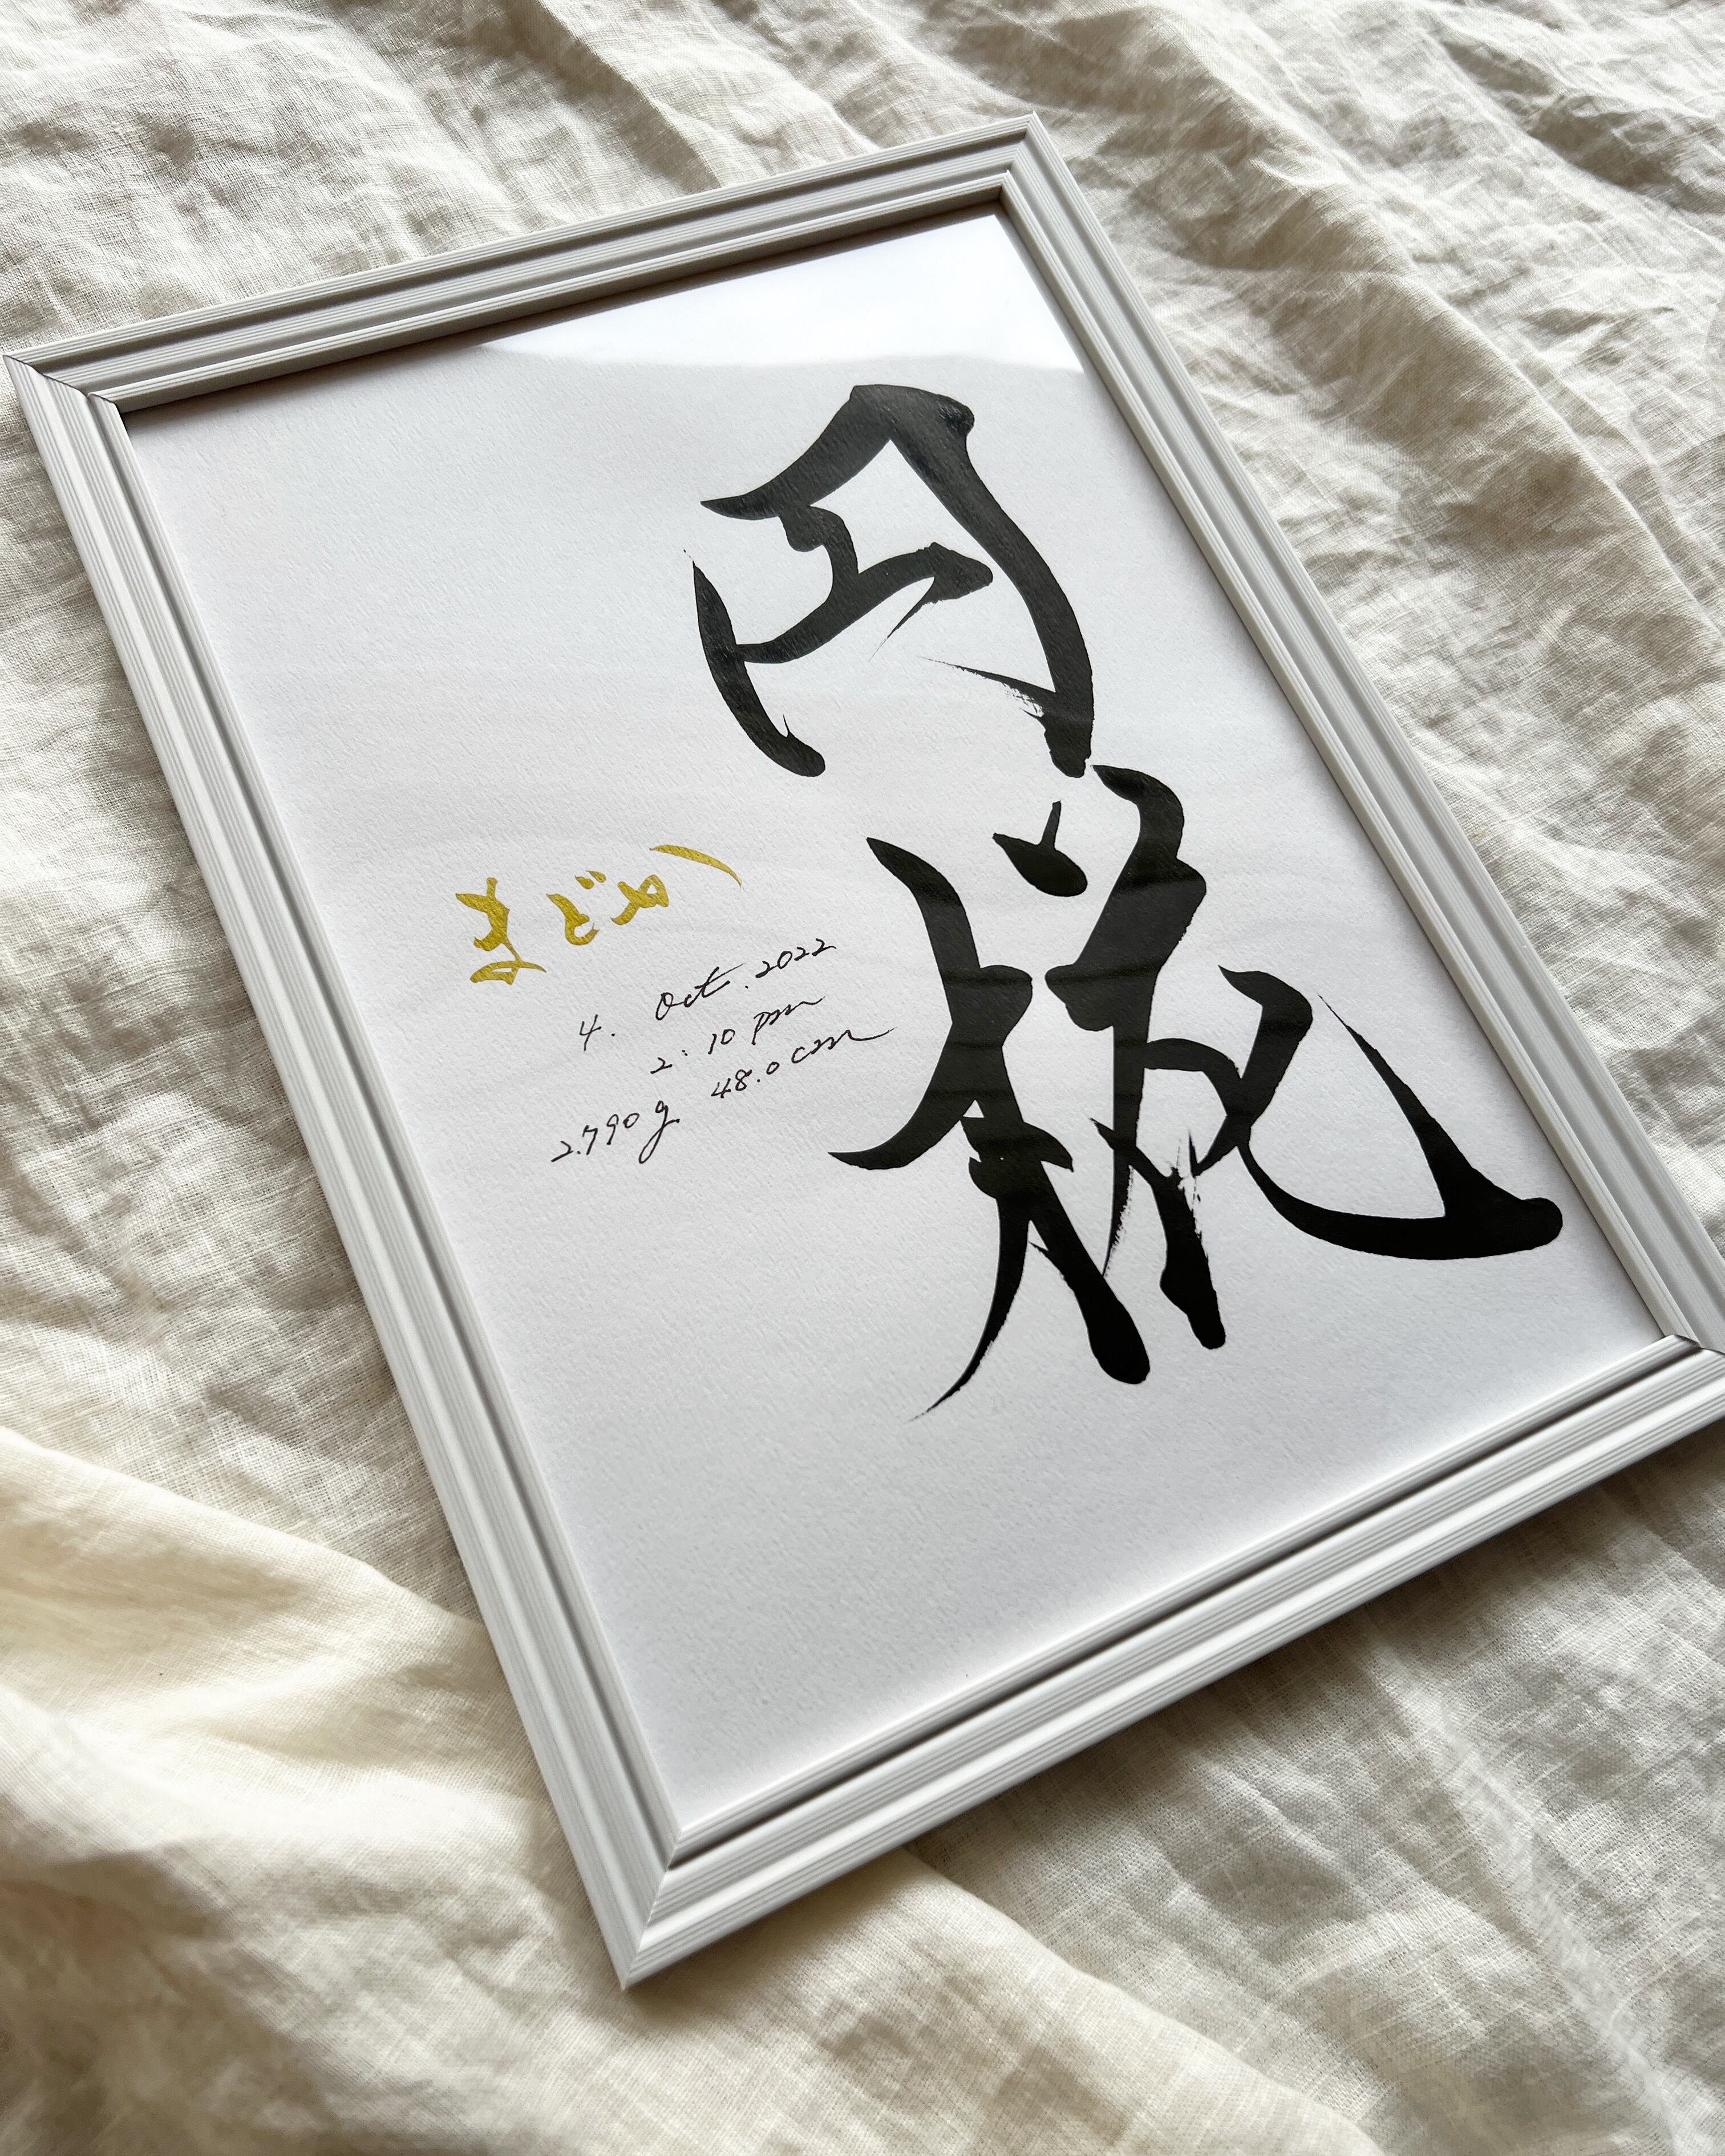 円椛
まどか
4. Oct. 2022
2:10 pm
2.790g 48.0cm